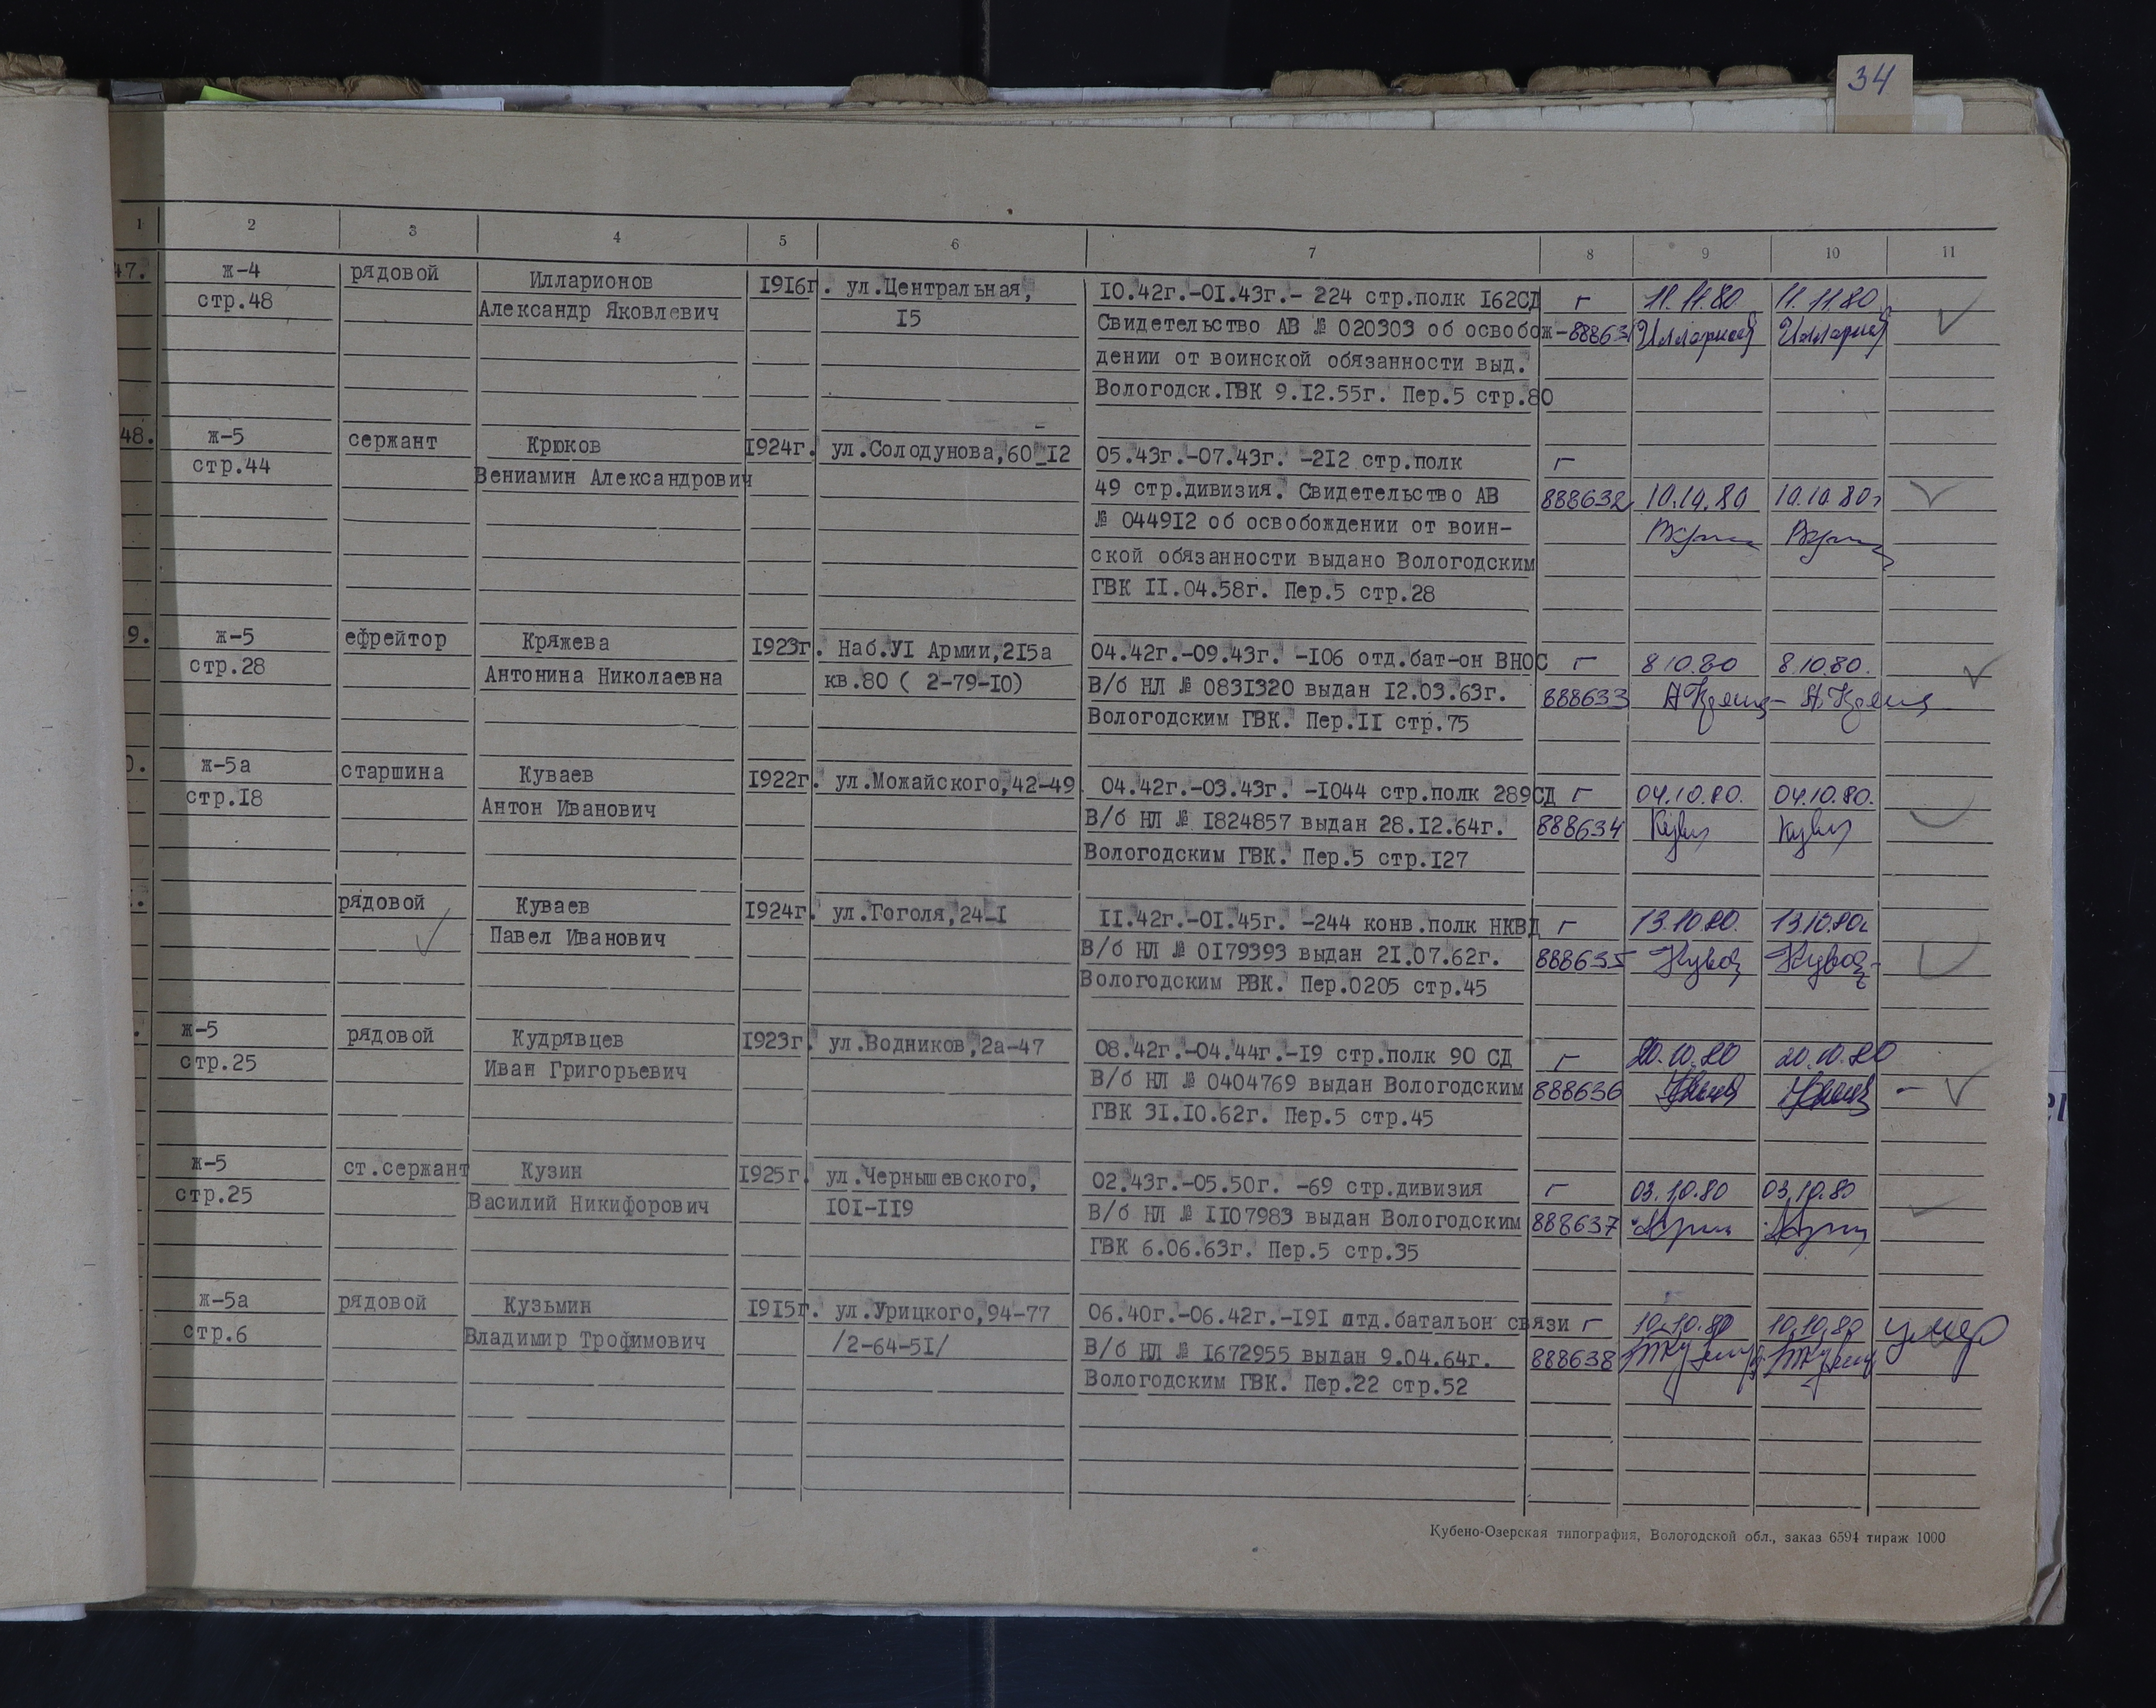 34
1 2 3 4 5 6 7 8 9 10 11
47. ж-4 рядовой Илларионов 1916г. ул.Центральная, 10.42г.-01.43г.- 224 стр.полк 162СД г 11.11.80 11.11.80
стр.48 Александр Яковлевич 15 Свидетельство АВ № 020303 об освобож- 888631 Илларионов Илларионов
дении от воинской обязанности выд.
Вологодск.ГВК 9.12.55г. Пер.5 стр.80
48. ж-5 сержант Крюков 1924г. ул.Солодунова,60-12 05.43г.-07.43г. -212 стр.полк г
стр.44 Вениамин Александрович 49 стр.дивизия. Свидетельство АВ 888632 10.10.80 10.10.80г
№ 044912 об освобождении от воин-
ской обязанности выдано Вологодским
ГВК 11.04.58г. Пер.5 стр.28
9. ж-5 ефрейтор Кряжева 1923г. Наб.УI Армии,215а 04.42г.-09.43г. -106 отд.бат-он ВНОС г 8.10.80 8.10.80.
стр.28 Антонина Николаевна кв.80 ( 2-79-10) В/б НЛ № 0831320 выдан 12.03.63г. 888633
Вологодским ГВК. Пер.11 стр.75
0. ж-5а старшина Куваев 1922г. ул.Можайского,42-49 04.42г.-03.43г. -1044 стр.полк 289СД г 04.10.80. 04.10.80.
стр.18 Антон Иванович В/б НЛ № 1824857 выдан 28.12.64г. 888634
Вологодским ГВК. Пер.5 стр.127
рядовой Куваев 1924г. ул.Гоголя,24-1 11.42г.-01.45г. -244 конв.полк НКВД г 13.10.80. 13.10.80г
Павел Иванович В/б НЛ № 0179393 выдан 21.07.62г. 888635
Вологодским РВК. Пер.0205 стр.45
ж-5 рядовой Кудрявцев 1923г. ул.Водников,2а-47 08.42г.-04.44г.-19 стр.полк 90 СД г 20.10.80 20.10.80
стр.25 Иван Григорьевич В/б НЛ № 0404769 выдан Вологодским 888636
ГВК 31.10.62г. Пер.5 стр.45
ж-5 ст.сержант Кузин 1925г. ул.Чернышевского, 02.43г.-05.50г. -69 стр.дивизия г 03.10.80 03.10.80
стр.25 Василий Никифорович 101-119 В/б НЛ № 1107983 выдан Вологодским 888637
ГВК 6.06.63г. Пер.5 стр.35
ж-5а рядовой Кузьмин 1915г. ул.Урицкого,94-77 06.40г.-06.42г.-191 отд.батальон связи г 10.10.80 10.10.80 умер
стр.6 Владимир Трофимович /2-64-51/ В/б НЛ № 1672955 выдан 9.04.64г. 888638
Вологодским ГВК. Пер.22 стр.52
Кубено-Озерская типография, Вологодской обл., заказ 6594 тираж 1000